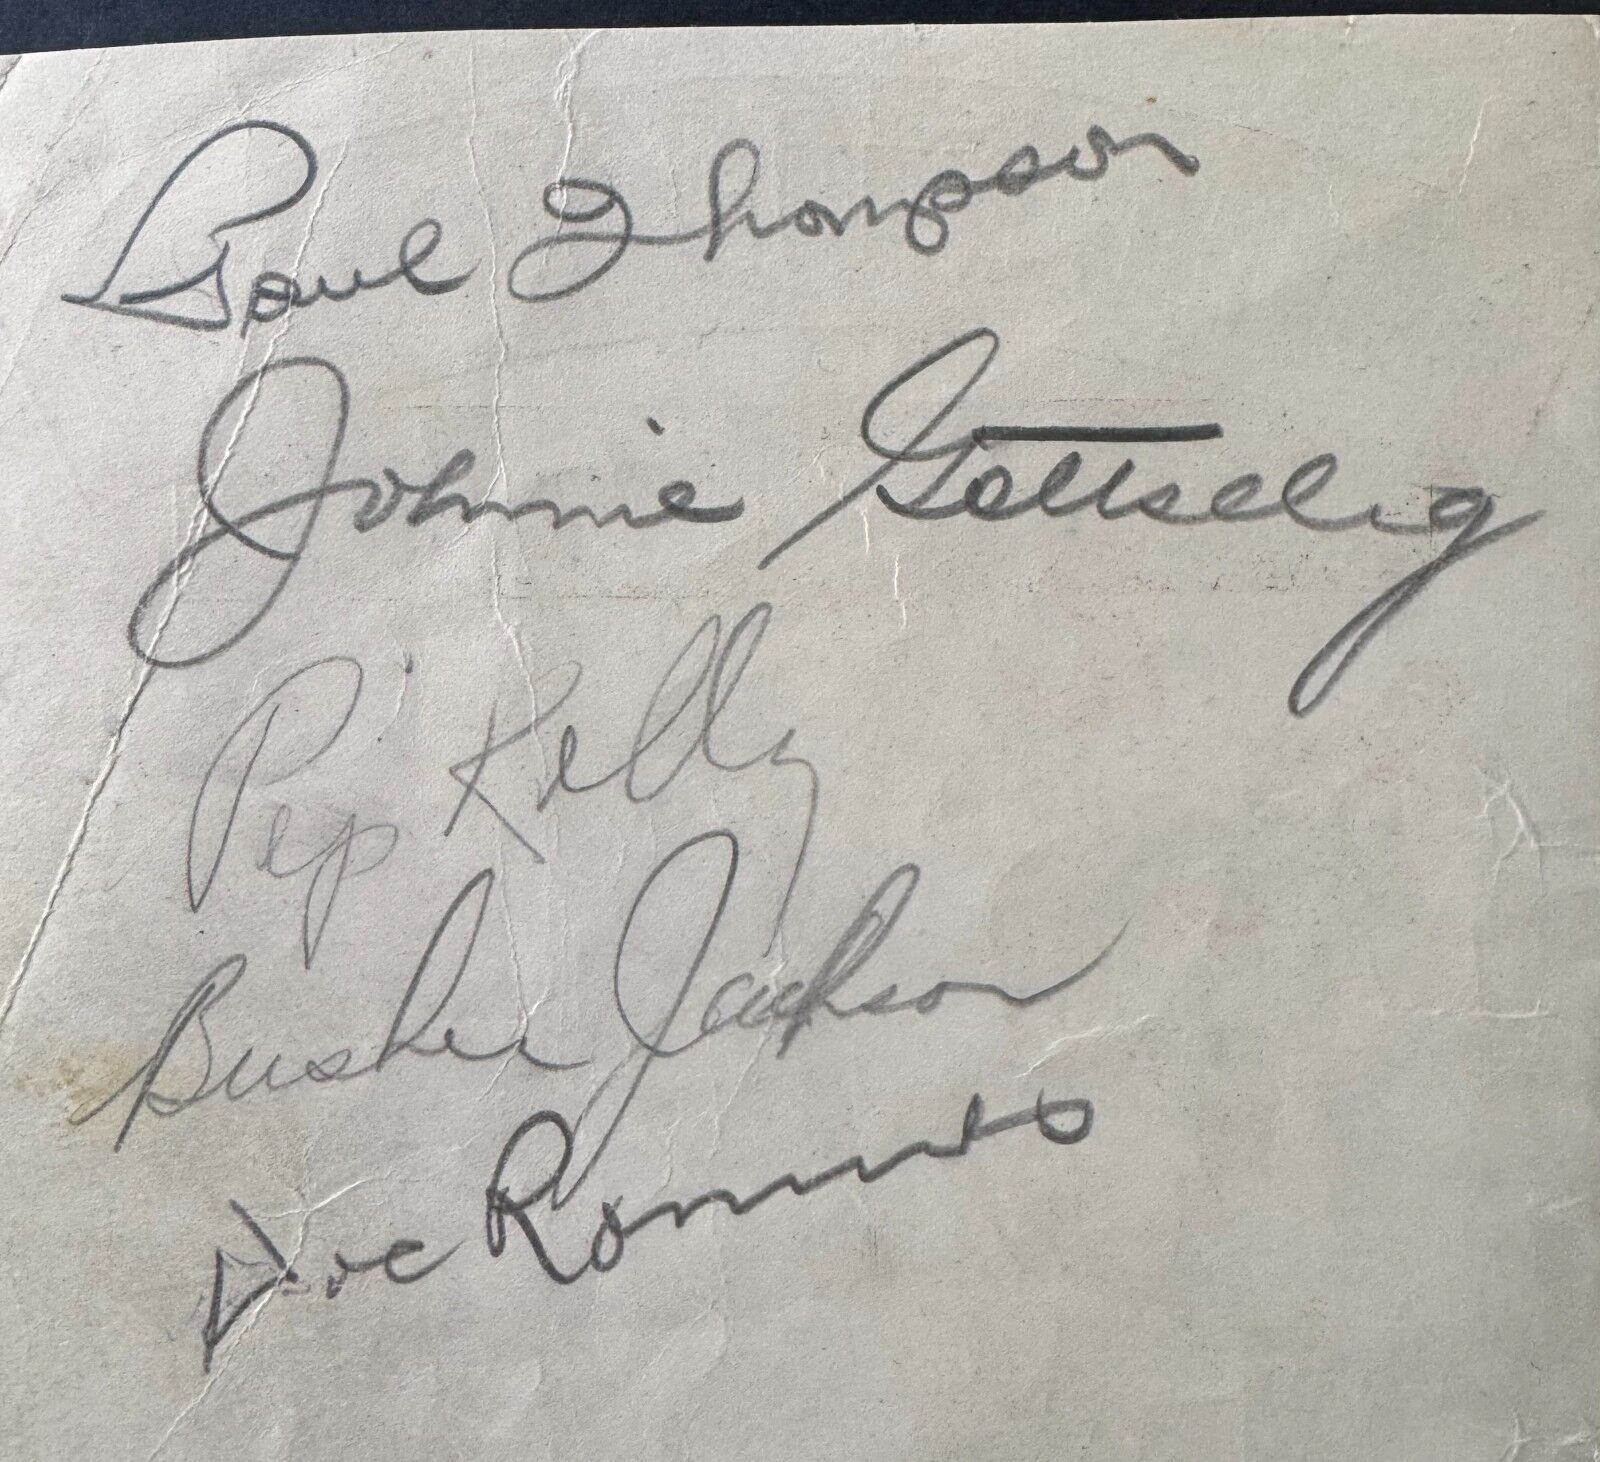 Paul Thompson
Johnnie Gottselig
"Pep" Kelly
Busher Jackson
Doc Romnes